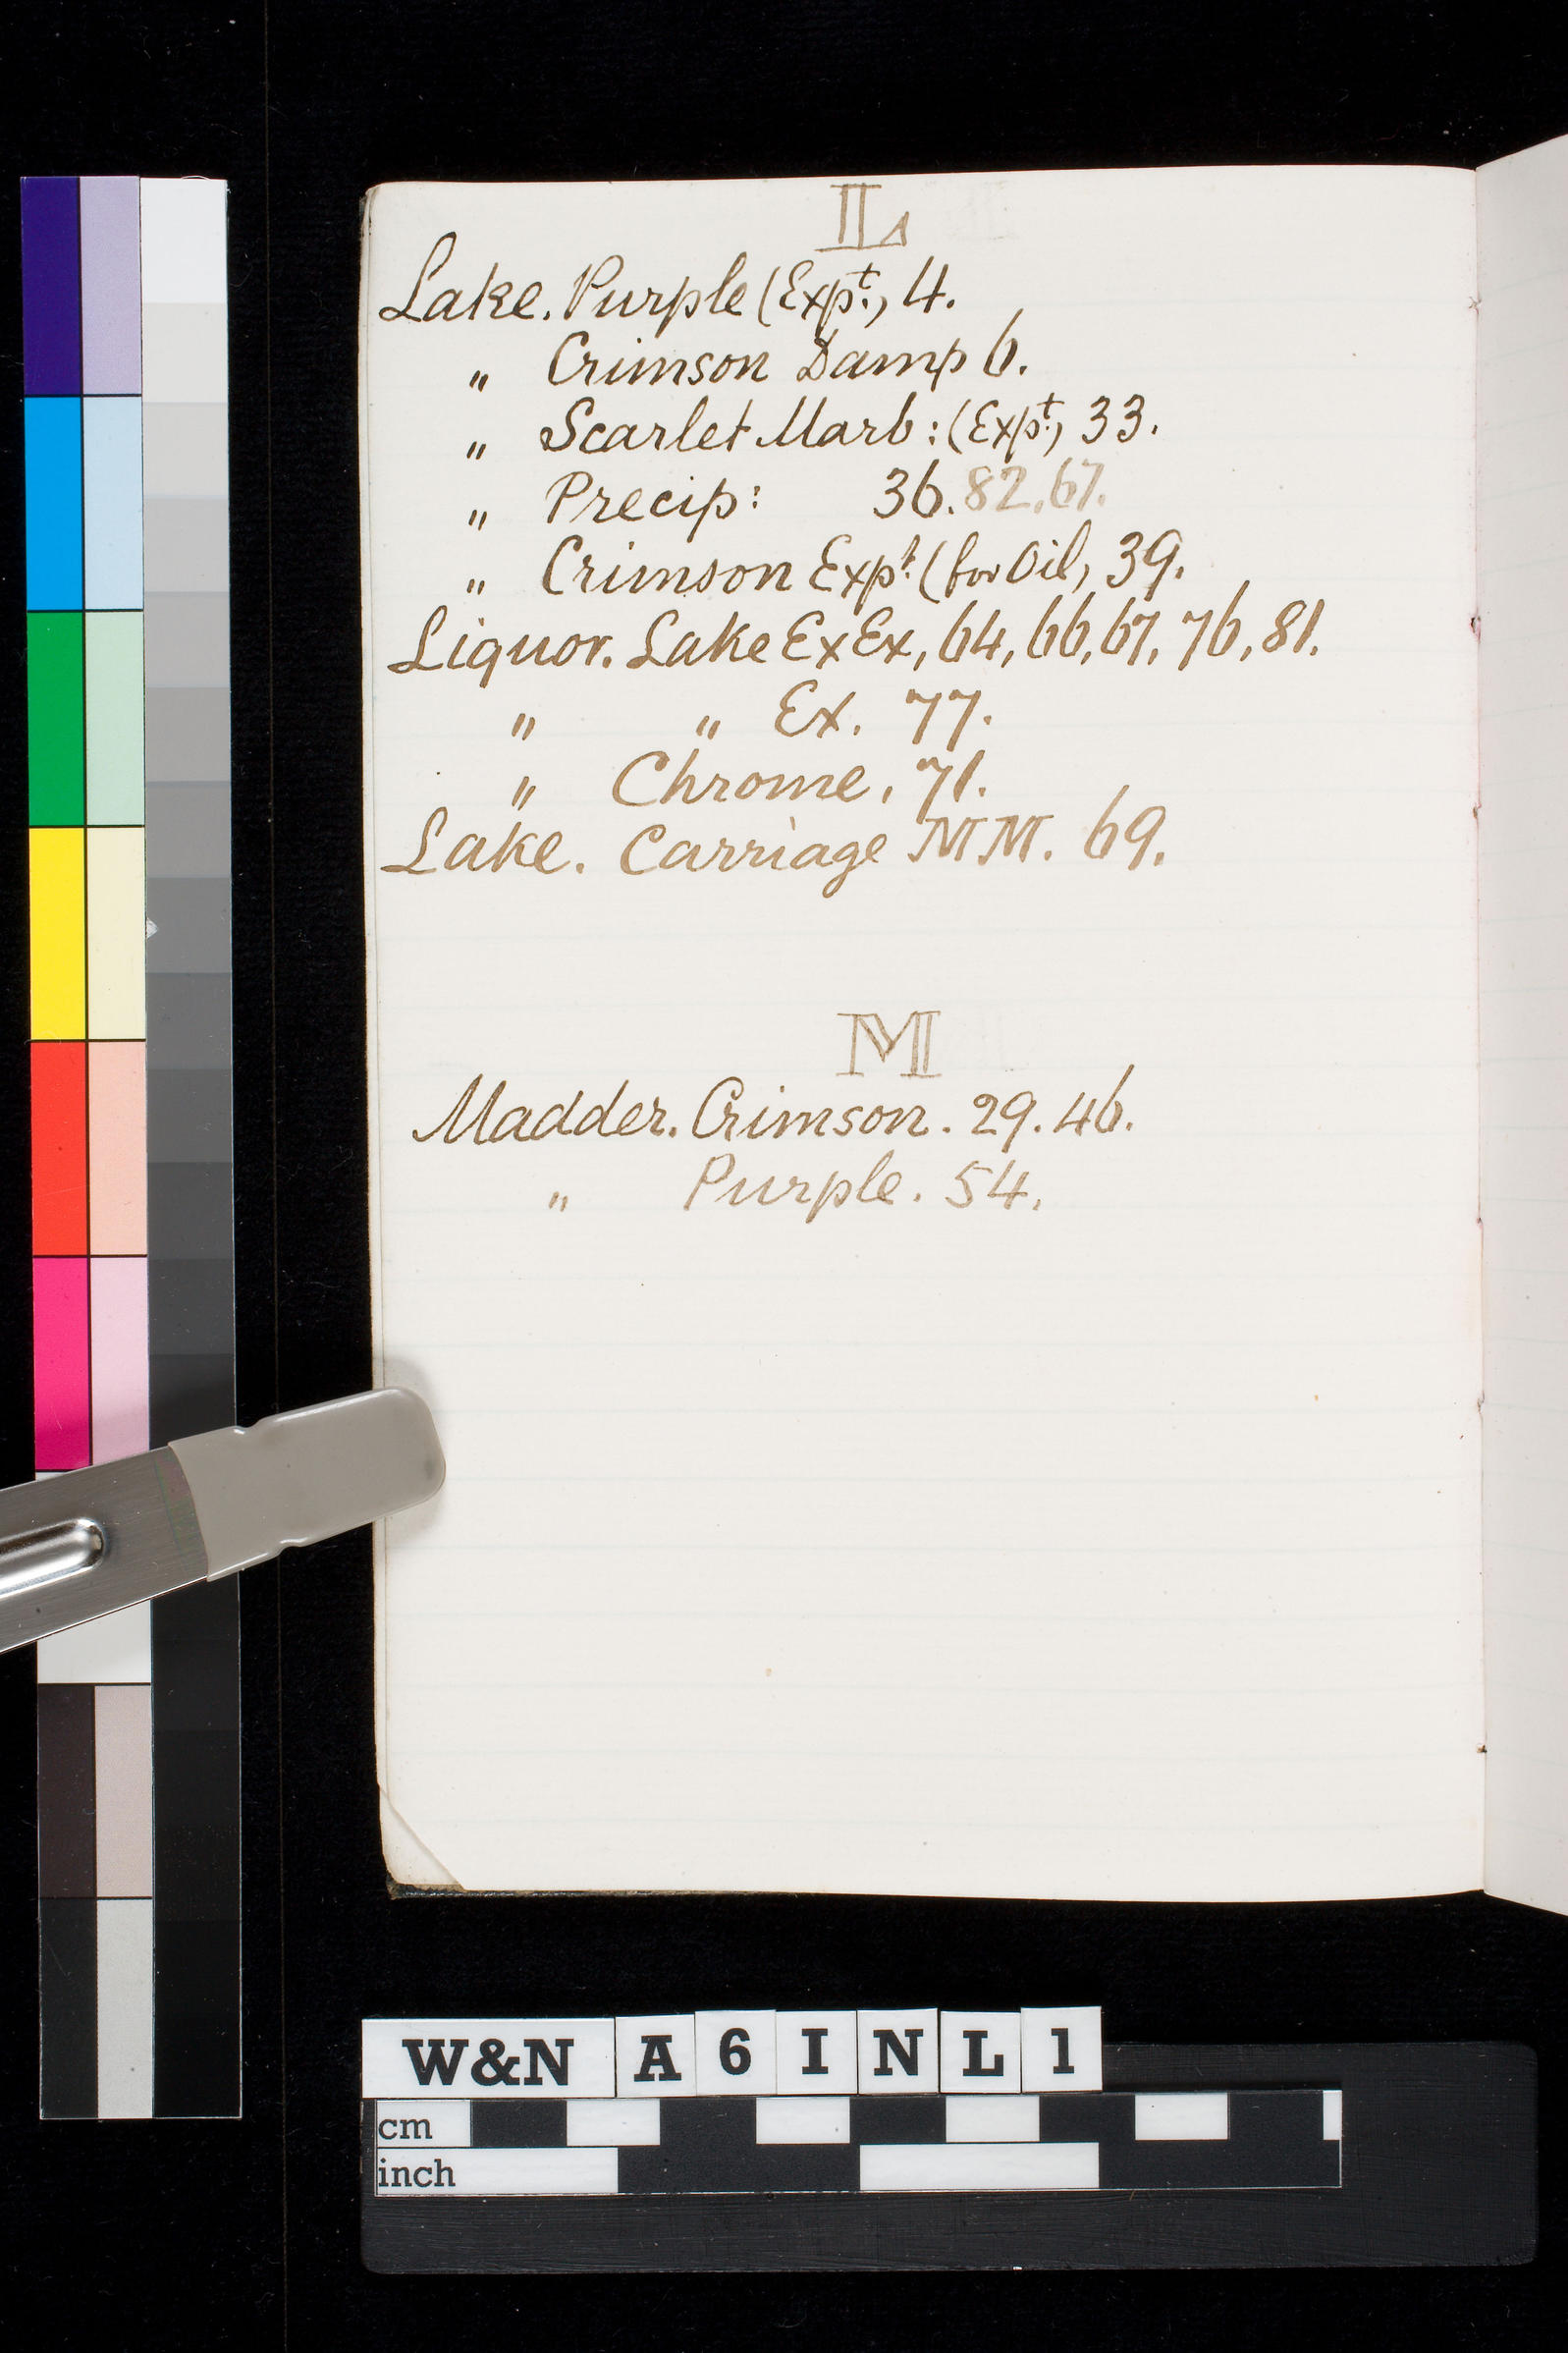 L
Lake. Purple (Expt:) 4.
„ Crimson Damp 6.
„ Scarlet Marb: (Expt:) 33.
„ Precip: 36. 82. 67.
„ Crimson Expt: (for Oil) 39.
Liquor. Lake Ex Ex, 64, 66, 67, 76, 81.
„ „ Ex. 77.
„ Chrome. 71.
Lake. Carriage MM. 69.
M
Madder. Crimson. 29. 46.
„ Purple. 54.
W&N A 6 I N L 1
cm
inch